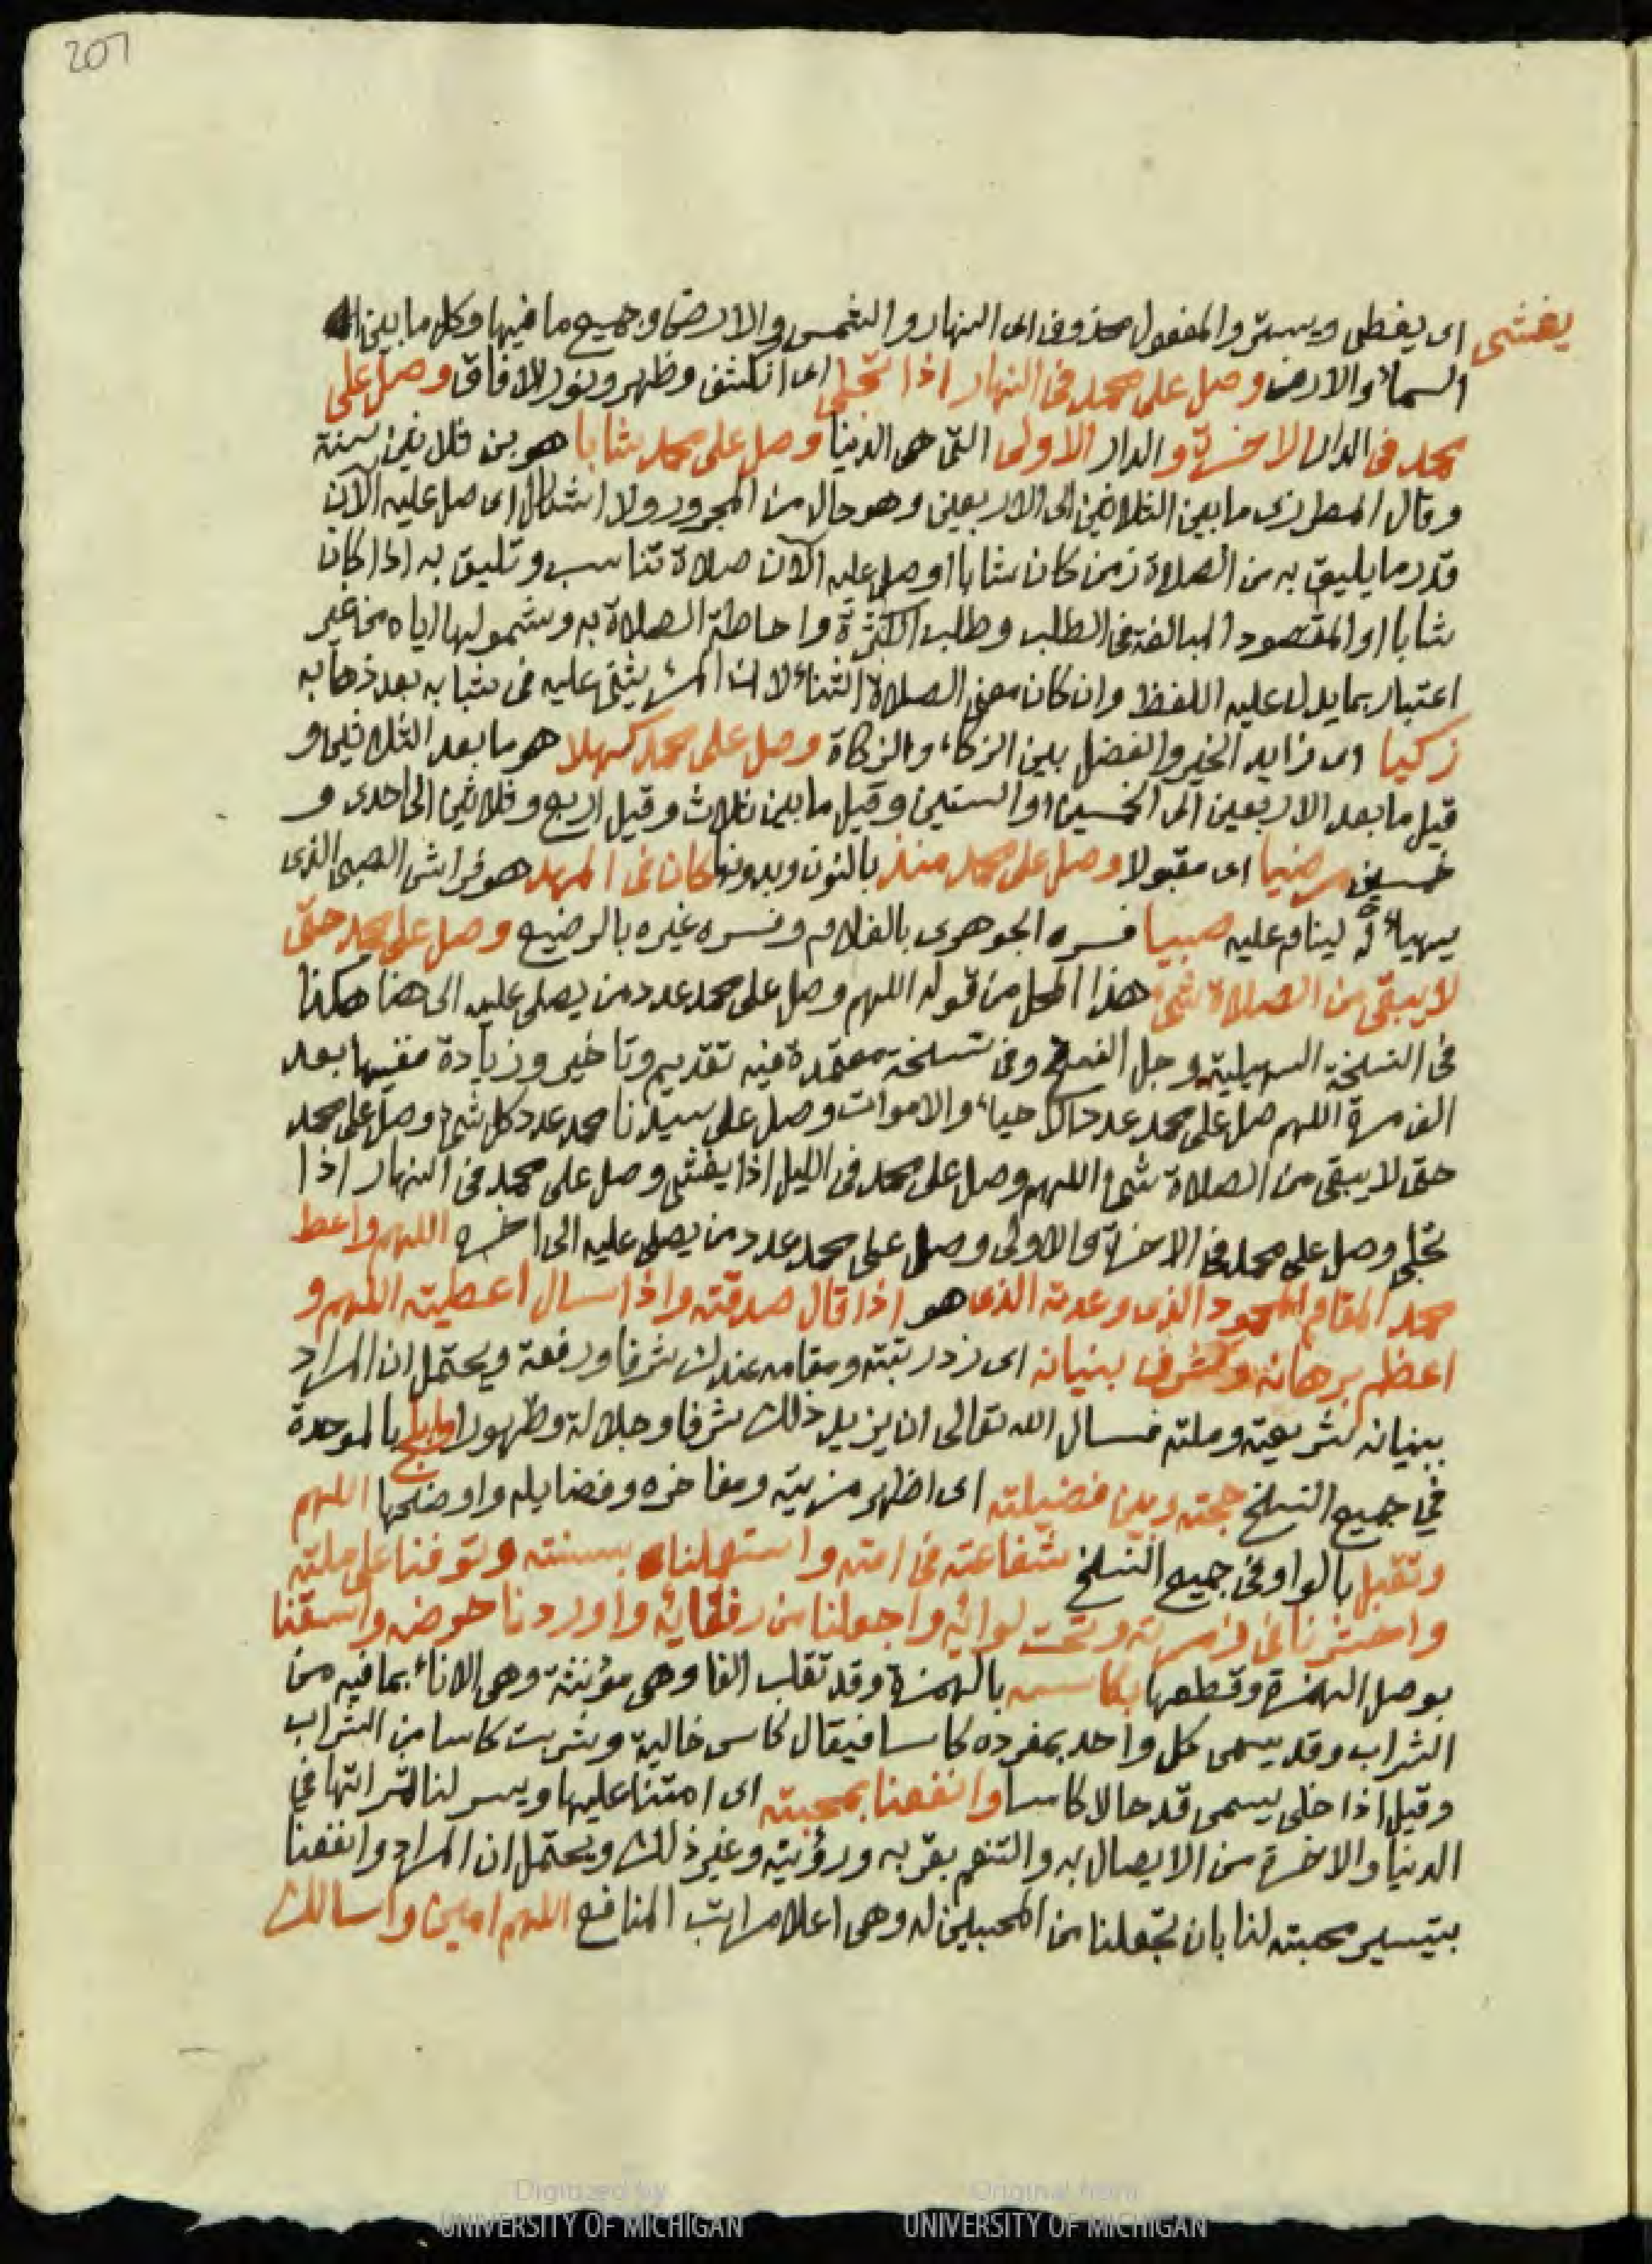 207
يغشى اى يغطى ويستر والمفعول محذوف اى النهار والشمس والارض وجميع ما فيها وكل ما بين
السماء والارض وصل على محمد فى النهار اذا تجلى اى انكشف وظهر ونور الافاق وصل على
محمد فى الدار الاخرة والدار الاولى التى هى الدنيا وصل على محمد شابا هو بن ثلاثين سنة
وقال المطرزى ما بين الثلاثين الى الاربعين وهو حال من المجرور ولا اشكال اى صل عليه الآن
قدر ما يليق به من الصلاة زمن كان شابا او صل عليه الآن صلاة تناسب وتليق به اذا كان
شابا او المقصود المبالغة فى الطلب وطلب الكثرة واحاطة الصلاة به وشمولها اياه من غير
اعتبار بما يدل عليه اللفظ وان كان معنى الصلاة الثناء لان المرء يثنى عليه فى شبابه بعد ذهابه
زكيا اى زايد الخير والفضل بين الزكاء والزكاة وصل على محمد كهلا هو ما بعد الثلاثين و
قيل ما بعد الاربعين الى الخمسين او الستين وقيل ما بين ثلاث وقيل اربع وثلاثين الى احدى و
خمسين مرضيا اى مقبولا وصل على محمد منذ بالنون وبدونها كان فى المهد هو فراش الصبى الذى
يهيأ له لينام عليه صبيا فسره الجوهرى بالغلام وفسره غيره بالرضيع وصل على محمد حتى
لا يبقى من الصلاة شئ هذا المحل من قوله اللهم وصل على محمد عدد من يصلى عليه الى هنا هكذا
فى النسخة السهيلية وجل النسخ وفى نسخة معتمدة فيه تقديم وتاخير وزيادة ففيها بعد
الف مرة اللهم صل على محمد عدد الاحياء والاموات وصل على سيدنا محمد عدد كل شئ وصل على محمد
حتى لا يبقى من الصلاة شئ اللهم وصل على محمد فى الليل اذا يغشى وصل على محمد فى النهار اذا
تجلى وصل على محمد فى الاخرة والاولى وصل على محمد عدد من يصلى عليه الى اخره اللهم واعط
محمد المقام المحمود الذى وعدته الذى هو اذا قال صدقته واذا سال اعطيته اللهم و
اعظم برهانه وشرف بنيانه اى زد رتبته ومقامه عندك شرفا ورفعة ويحتمل ان المراد
ببنيانه شريعته وملته فسال الله تعالى ان يزيد ذلك شرفا وجلالة وظهورا وابلج بالموحدة
في جميع النسخ حجته وبين فضيلته اى اظهر مزيته ومفاخره وفضايله واوضحها اللهم
وتقبل بالواو فى جميع النسخ شفاعته فى امته واستعملنا بسنته وتوفنا على ملته
واحشرنا فى زمرته وتحت لوائه واجعلنا من رفقائه واوردنا حوضه واسقنا
بوصل الهمزة وقطعها بكاسه بالهمزة وقد تقلب الفا وهى مؤنثة وهى الاناء بما فيه من
الشراب وقد يسمى كل واحد بمفرده كاسا فيقال كاس خالية وشربت كاسا من الشراب
وقيل اذا خلى يسمى قدحا لا كاسا وانفعنا بمحبته اى امتنا عليها ويسر لنا ثمراتها في
الدنيا والاخرة من الايصال به والتنعم بقربه ورؤيته وغير ذلك ويحتمل ان المراد وانفعنا
بتيسير محبته لنا بان تجعلنا من المحبين له وهى اعلا مراتب المنافع اللهم امين واسالك
Digitized by
UNIVERSITY OF MICHIGAN
Original from
UNIVERSITY OF MICHIGAN